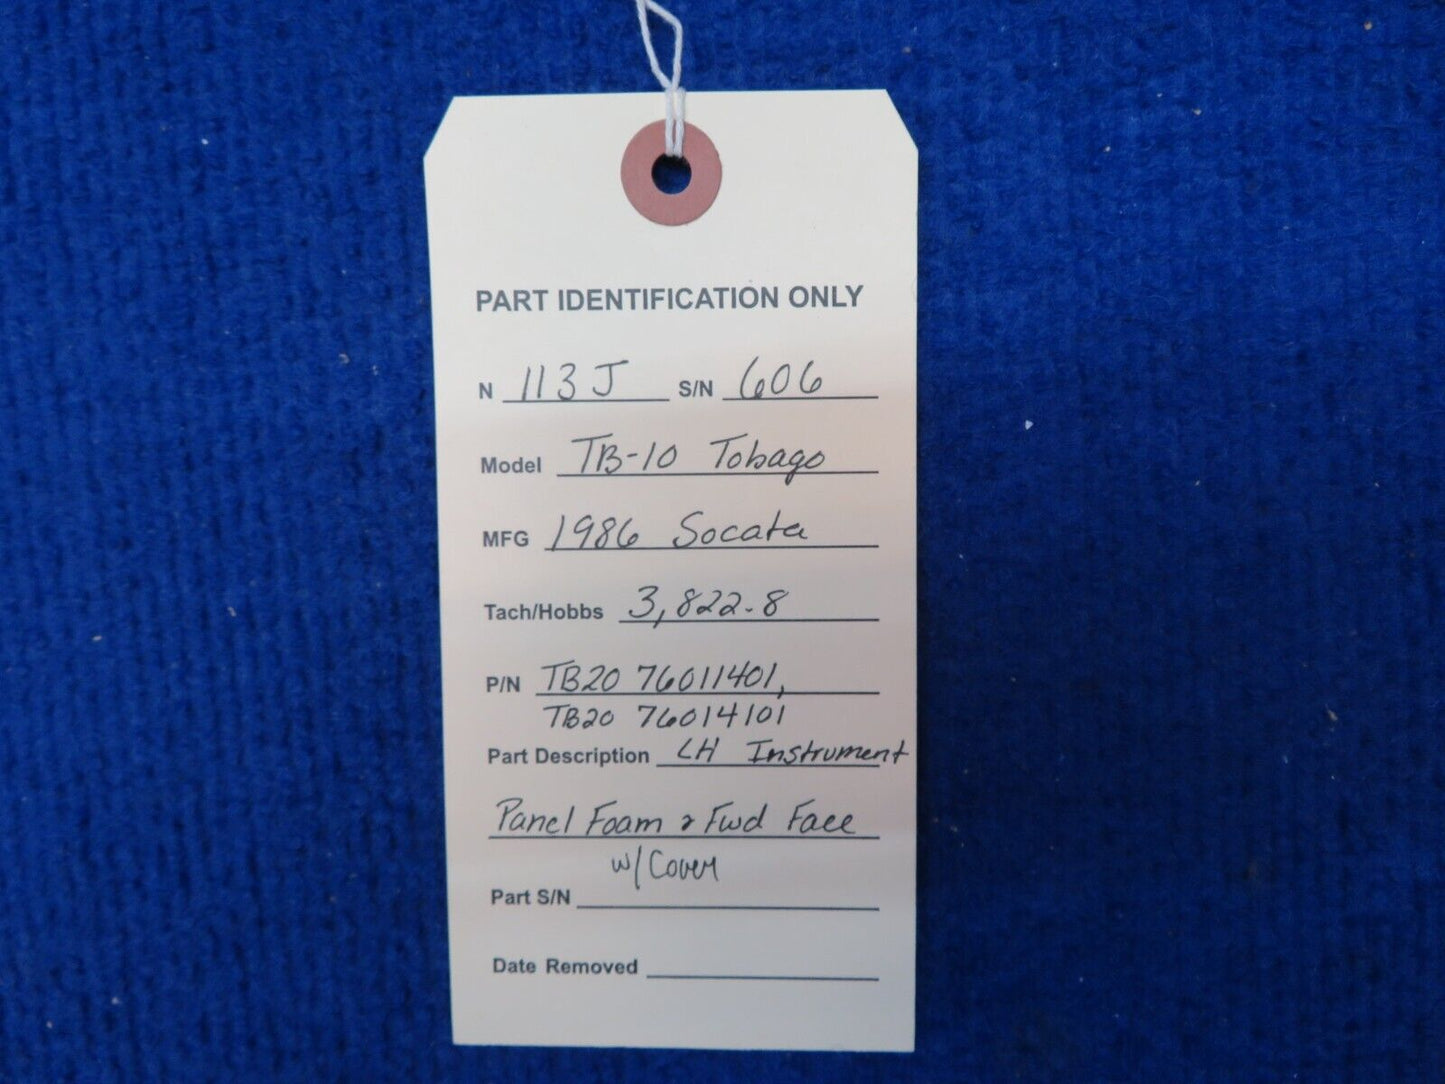 PART IDENTIFICATION ONLY
N 113J S/N 606
Model TB-10 Tobago
MFG 1986 Socata
Tach/Hobbs 3,822.8
P/N TB20 76011401,
TB20 76014101
Part Description LH Instrument
Panel Foam & Fwd Face
w/Cover
Part S/N
Date Removed